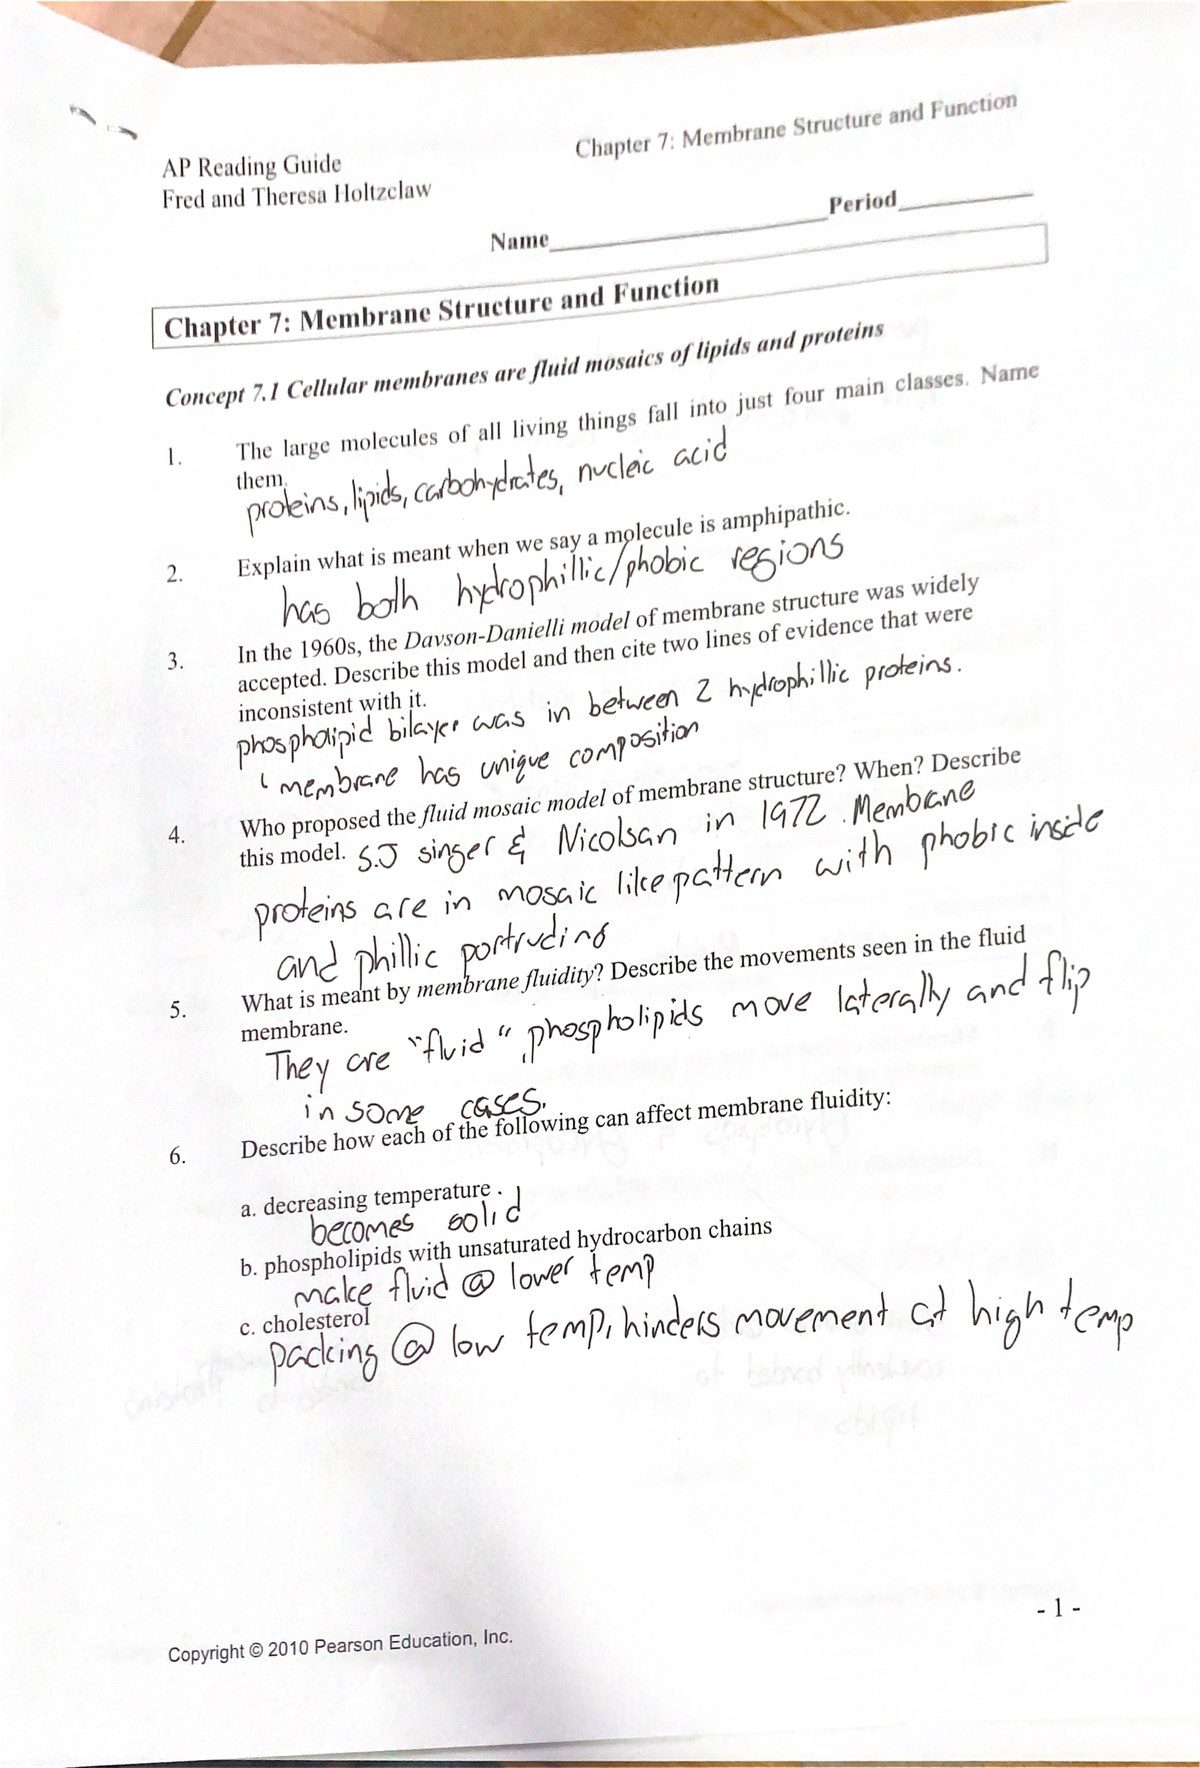 Chapter 7: Membrane Structure and Function
AP Reading Guide
Fred and Theresa Holtzclaw
Name____________________Period__________
Chapter 7: Membrane Structure and Function
Concept 7.1 Cellular membranes are fluid mosaics of lipids and proteins
1. The large molecules of all living things fall into just four main classes. Name
them.
proteins, lipids, carbohydrates, nucleic acid
2. Explain what is meant when we say a molecule is amphipathic.
has both hydrophillic/phobic regions
3. In the 1960s, the Davson-Danielli model of membrane structure was widely
accepted. Describe this model and then cite two lines of evidence that were
inconsistent with it.
phospholipid bilayer was in between 2 hydrophillic proteins.
membrane has unique composition
4. Who proposed the fluid mosaic model of membrane structure? When? Describe
this model. S.J singer & Nicolsan in 1972. Membrane
proteins are in mosaic like pattern with phobic inside
and phillic portruding
5. What is meant by membrane fluidity? Describe the movements seen in the fluid
membrane.
They are "fluid", phospholipids move laterally and flip
in some cases.
6. Describe how each of the following can affect membrane fluidity:
a. decreasing temperature
becomes solid
b. phospholipids with unsaturated hydrocarbon chains
make fluid @ lower temp
c. cholesterol
packing @ low temp, hinders movement at high temp
- 1 -
Copyright © 2010 Pearson Education, Inc.